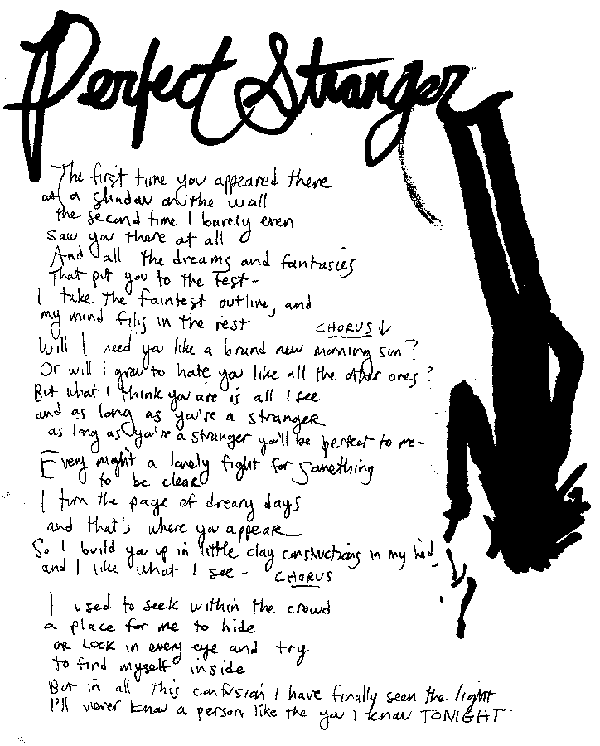 Perfect Stranger
The first time you appeared there
a shadow on the wall
the second time I barely even
saw you there at all
And all the dreams and fantasies
That put you to the test -
I take the faintest outline, and
my mind fills in the rest
CHORUS ↓
Will I need you like a brand new morning sun?
Or will i grow to hate you like all the other ones?
But what I think you are is all I see
and as long as you're a stranger
as long as you're a stranger you'll be perfect to me -
Every night a lonely fight for something
to be clear
I turn the page of dreary days
and that's where you appear
So I build you up in little clay constructions in my head
and I like what I see - CHORUS
I used to seek within the crowd
a place for me to hide
or look in every eye and try
to find myself inside
But in all this confusion I have finally seen the light
I'll never know a person like the you I know TONIGHT